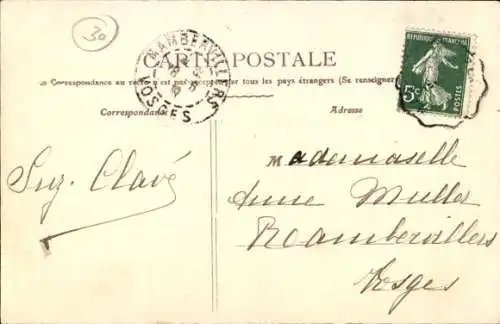 30
RAMBERVILLERS
VOSGES
CARTE POSTALE
La Correspondance au recto n'est pas acceptée par tous les pays étrangers (Se renseigner
Correspondance
Adresse
REPUBLIQUE FRANÇAISE
5c
POSTES
Suz. Clavé
Mademoiselle
Anne Muller
Rambervillers
Vosges